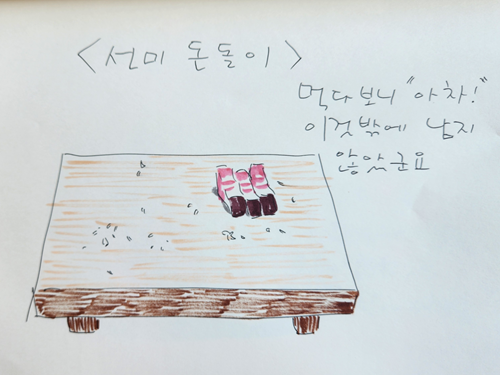 <선미 돈돌이>
먹다보니 "아차!"
이것밖에 남지
않았군요